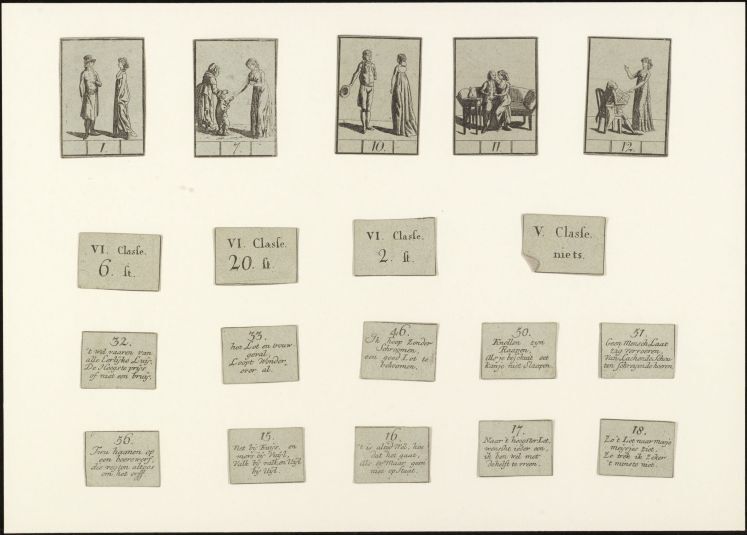 1.
7.
10.
11.
12.
VI. Claſse.
6. ſt.
VI. Claſse.
20. ſt.
VI. Claſse.
2. ſt.
V. Claſse.
niets.
32.
't wel vaaren van
alle Eerlijke Luij.
De Hoogste prijs
of niet een bruij.
33.
het Lot en trouw
geral,
Loopt Wonder
over al.
46.
Ik hoop Zonder
Schroomen,
een goed Lot te
bekoomen.
50.
Knollen zyn
Raapen,
Als je
kan je niet Slaapen.
51.
Geen Mensch Laat
zig vervoeren
Van Lachende
ten schreijende hoeren
56.
Twu haanen op
een boerewerf,
die vegten altijd
om het erff.
15.
en
Valk bij valk en Uijl
bij Uijl.
16.
't is altijd Wel, hoe
dat het gaat,
Als er Maar geen
niet op Staat.
17.
Naar 't hoogste Lot,
wenscht ieder een,
ik ben wel met
de helft te vreen.
18.
Zo 't Lot naar
meijsjes ziet.
Zo trek ik Zeker
't minste niet.